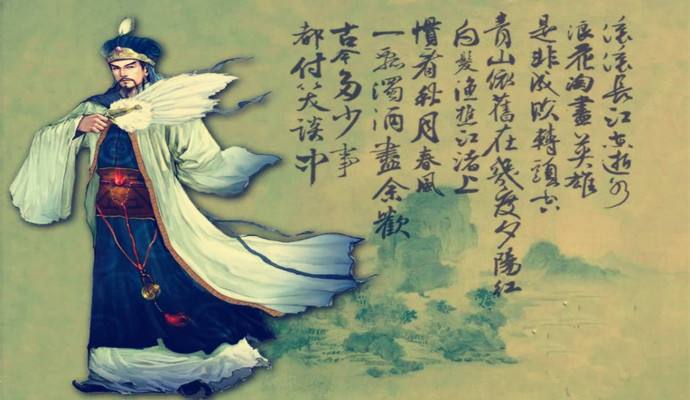 滚滚長江东逝水
浪花淘盡英雄
是非成敗轉頭空
青山依舊在幾度夕陽紅
白髮漁樵江渚上
慣看秋月春風
一壺濁酒盡余歡
古今多少事
都付笑談中